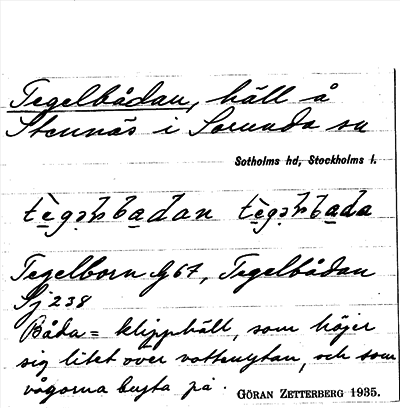 Tegelbådan, häll å
Stennäs i Sorunda sn
Sotholms hd, Stockholms l.
tègəɽbadan tègəɽbada
Tegelborn G 67, Tegelbådan
Sj 238
Båda = klipphäll, som höjer
sig litet över vattenytan, och som
vågorna bryta på.
GÖRAN ZETTERBERG 1935.